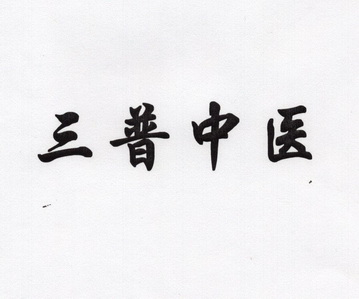 三普中医